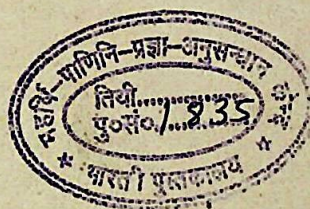 महर्षि-पाणिनि-प्रज्ञा-अनुसन्धान
तिथी..............
पु०सं०/1835......
* भारती पुस्तकालय *